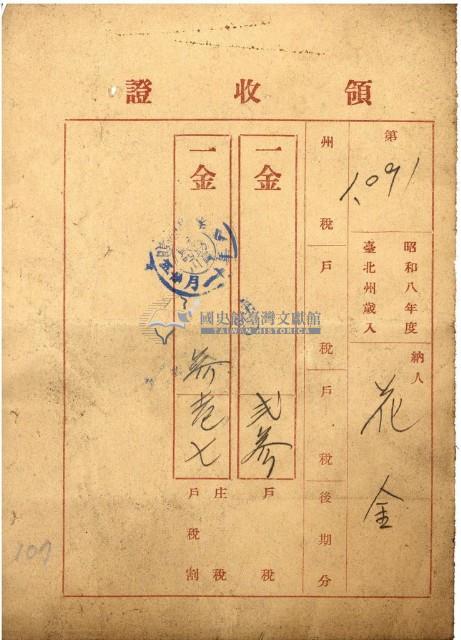 領收證
第
1,091
昭和八年度
臺北州歲入
納人
花
金
州稅戶稅戶稅後期分
一金
弍參
戶稅
一金
參壱七
庄稅
戶稅割
月
國史館臺灣文獻館
TAIWAN HISTORICA
107